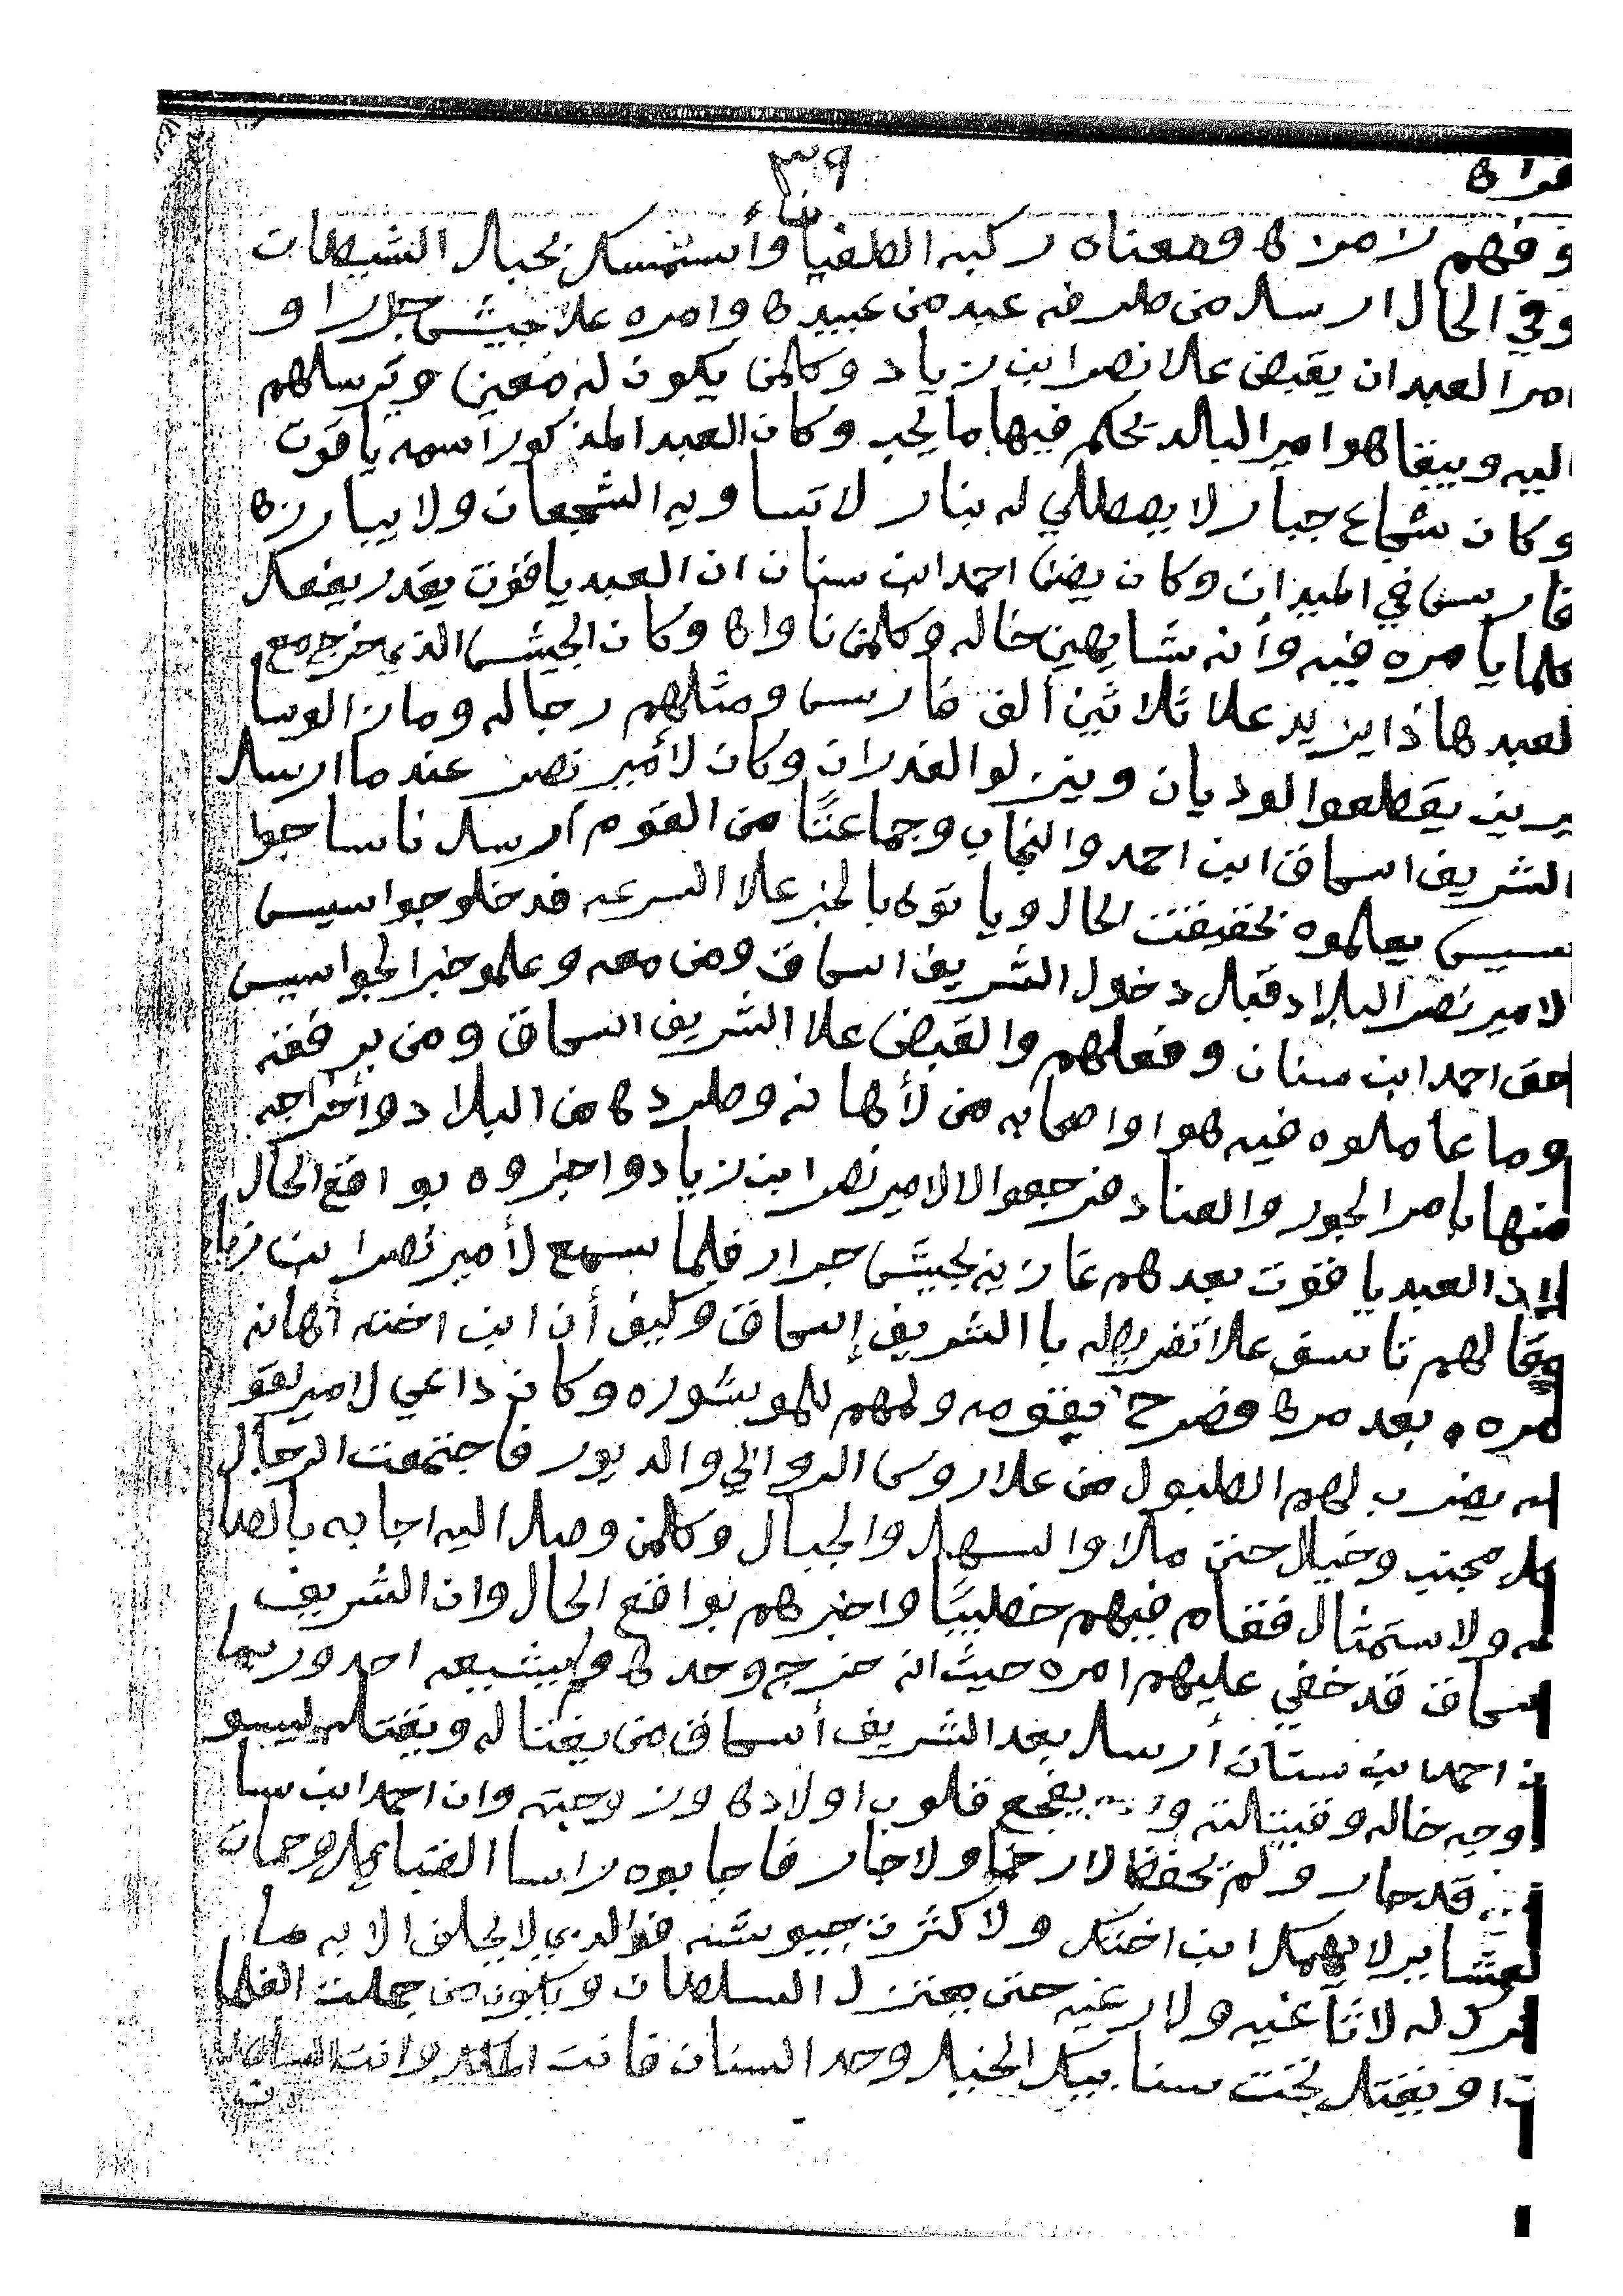 ٣٩
قراه
وفهم لامره ومعناه ركبه الطغيان وأستمسك بحبال الشيطان
وفي الحال ارسل من طرفه عبد من عبيده وامره علا جيش جرار او
امر العبد ان يقبض علا نصر ابن زياد وكلمن يكون له معين ويرسلهم
اليه ويبقا هوا امير البالد يحكم فيها ما يحب وكان العبد المذكور اسمه ياقوت
وكان شجاع جبار لا يصطلي له بنار لا تساويه الشجعان ولا يبارزه
فارس في الميدان وكان يضن احمد ابن سنان ان العبد ياقوت يقدر يفعل
كلما يامره فيه وأنه شايهين خاله وكلمن ناواه وكان الجيش الذي خرج مع
لعبد هاذا يزيد علا ثلاثين ألف فارس ومثلهم رجاله وما زالو سا
يرين يقطعوا الوديان وينزلو الغدران وكان لأمير نصر عند ما ارسل
الشريف اسحاق ابن احمد والنجاب وجماعتًا من القوم أرسل ناسا جوا
سيس يعلموه بحقيقت الحال وياتوه بالخبر علا السرعه فدخلو جواسيس
لامير نصر البلاد قبال دخول الشريف اسحاق ومن معه وعلمو خبر الجواسيس
حق احمد ابن سنان وفعلهم والقبض علا الشريف اسحاق ومن برفقته
وما عاملوه فيه هوا واصحابه من لأهانه وطرده من البلاد وأخراجه
منها بامر الجور والعناد فرجعوا الا لامير نصر ابن زياد واخبروه بواقع الحال
وان العبد ياقوت بعدهم غازيه بجيش جرار فلما سمع لأمير نصر ابن زياد
مقالهم تاسف علا تفريطه با الشريف إسحاق وكيف أن ابن اخته أهانه
مره بعد مره وضرح بقومه ولمهم للمويشوره وكان داعي لامير نفو
له يضرب لهم الطبول من علا روس الروالي والديور فاجتمعت الرجال
كل مجنب وخيال حتى ملاوا السهل والجبال وكلمن وصل اليه اجابه بالطا
عه ولاستمثال فقام فيهم خطيبًا واخبرهم بواقع الحال وان الشريف
اسحاق قد خفي عليهم امره حيث انه خرج وحده ولم يشيعه احد وربما
ن احمد ابن سنان أرسل بعد الشريف أسحاق من يغتاله ويقتله ليسو
وجه خاله وقبيلته ويفجع قلوب اولاده وزوجته وان احمد ابن سنا
قد جار ولم يحفظ لا رحما ولا جار فاجابوه راسا القبايل وحمات
لعشاير لا يهمك ابن اختك ولا كثرت جيوشه فوالدي لا يحلف الا به ما
نترك له لا ثاغيه ولا راغيه حتى يعتزل السلطان ويكون من جملت الغلما
ن او يقتل تحت سنابيك الخيل وحد السنان فانت الملك وانت السلطا
ن